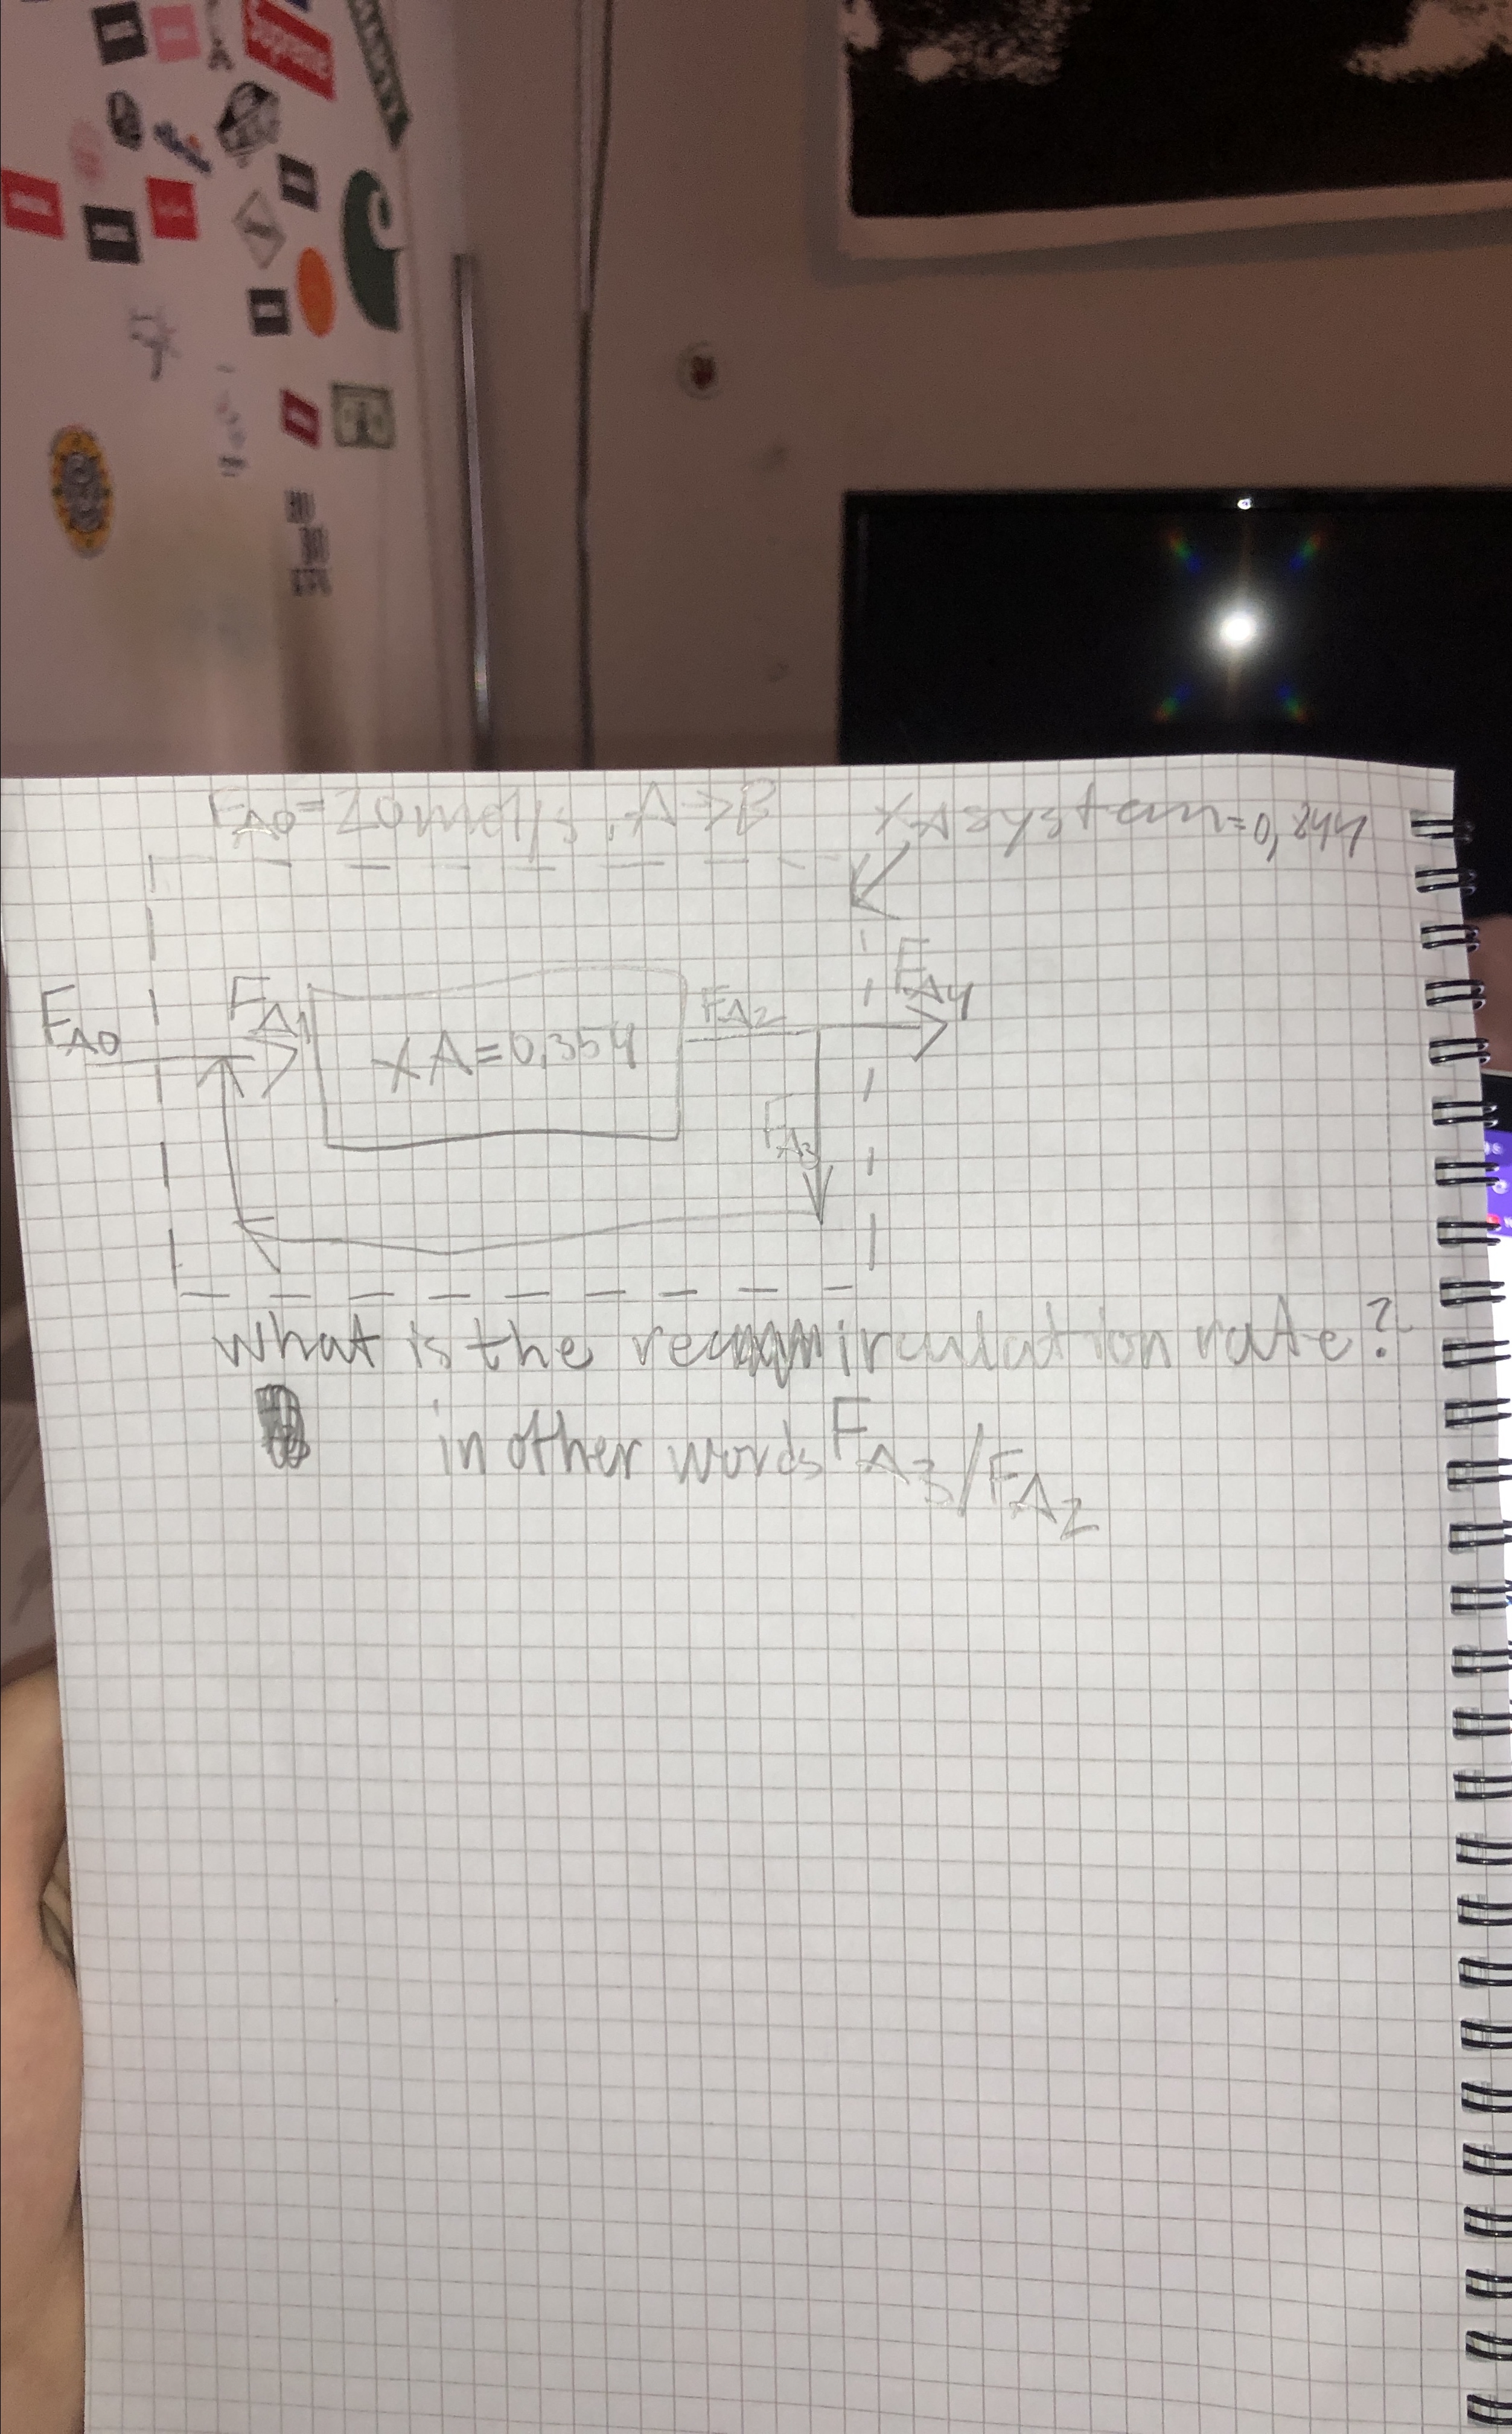 Supreme
F_A0 = 20 mol/s, A -> B
x_A system = 0,844
F_A0
F_A1
xA = 0,354
F_A2
F_A4
F_A3
What is the recirculation rate?
in other words F_A3/F_A2